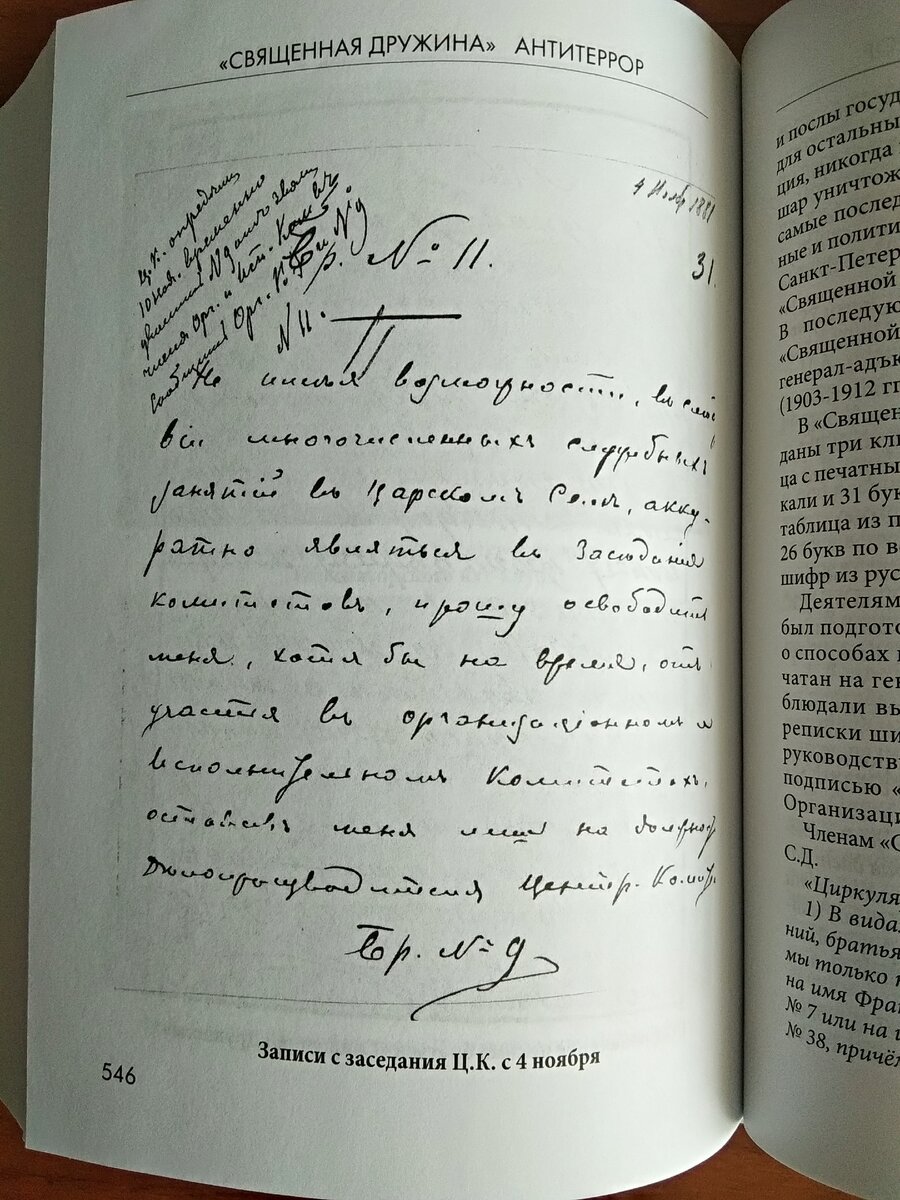 «СВЯЩЕННАЯ ДРУЖИНА» АНТИТЕРРОР
4 Нояб 1881
31.
Ц.К. опредѣлил
10 ноя. временно
члена Орг. и Исп. Ком
сообщить Орг. К. Бр и № 9
№ 11.
Бр. № 11.
Не имѣя возможности, въ силу
всѣхъ многочисленныхъ служебныхъ
занятій въ Царскомъ Селѣ, акку-
ратно являться въ Засѣданія
комитетовъ, прошу освободить
меня, хотя бы на время, отъ
участія въ организаціонномъ и
исполнительномъ Комитетахъ,
оставивъ меня лишь на должности
Дѣлопроизводителя Центр. Комит.
Бр. № 9
Записи с заседания Ц.К. с 4 ноября
546
и послы госуд
для остальны
ция, никогда
шар уничтож
самые послед
ные и полити
Санкт-Петер
«Священной
В последую
«Священной
генерал-адъю
(1903-1912 гг
В «Священ
даны три кл
ца с печатны
кали и 31 бук
таблица из п
26 букв по в
шифр из рус
Деятелям
был подгото
о способах
чатан на ген
блюдали вы
реписки ши
руководств
подписью «
Организаци
Членам «С
С.Д.
«Циркуля
1) В вида
ний, братья
мы только
на имя Фра
№ 7 или на
№ 38, причём